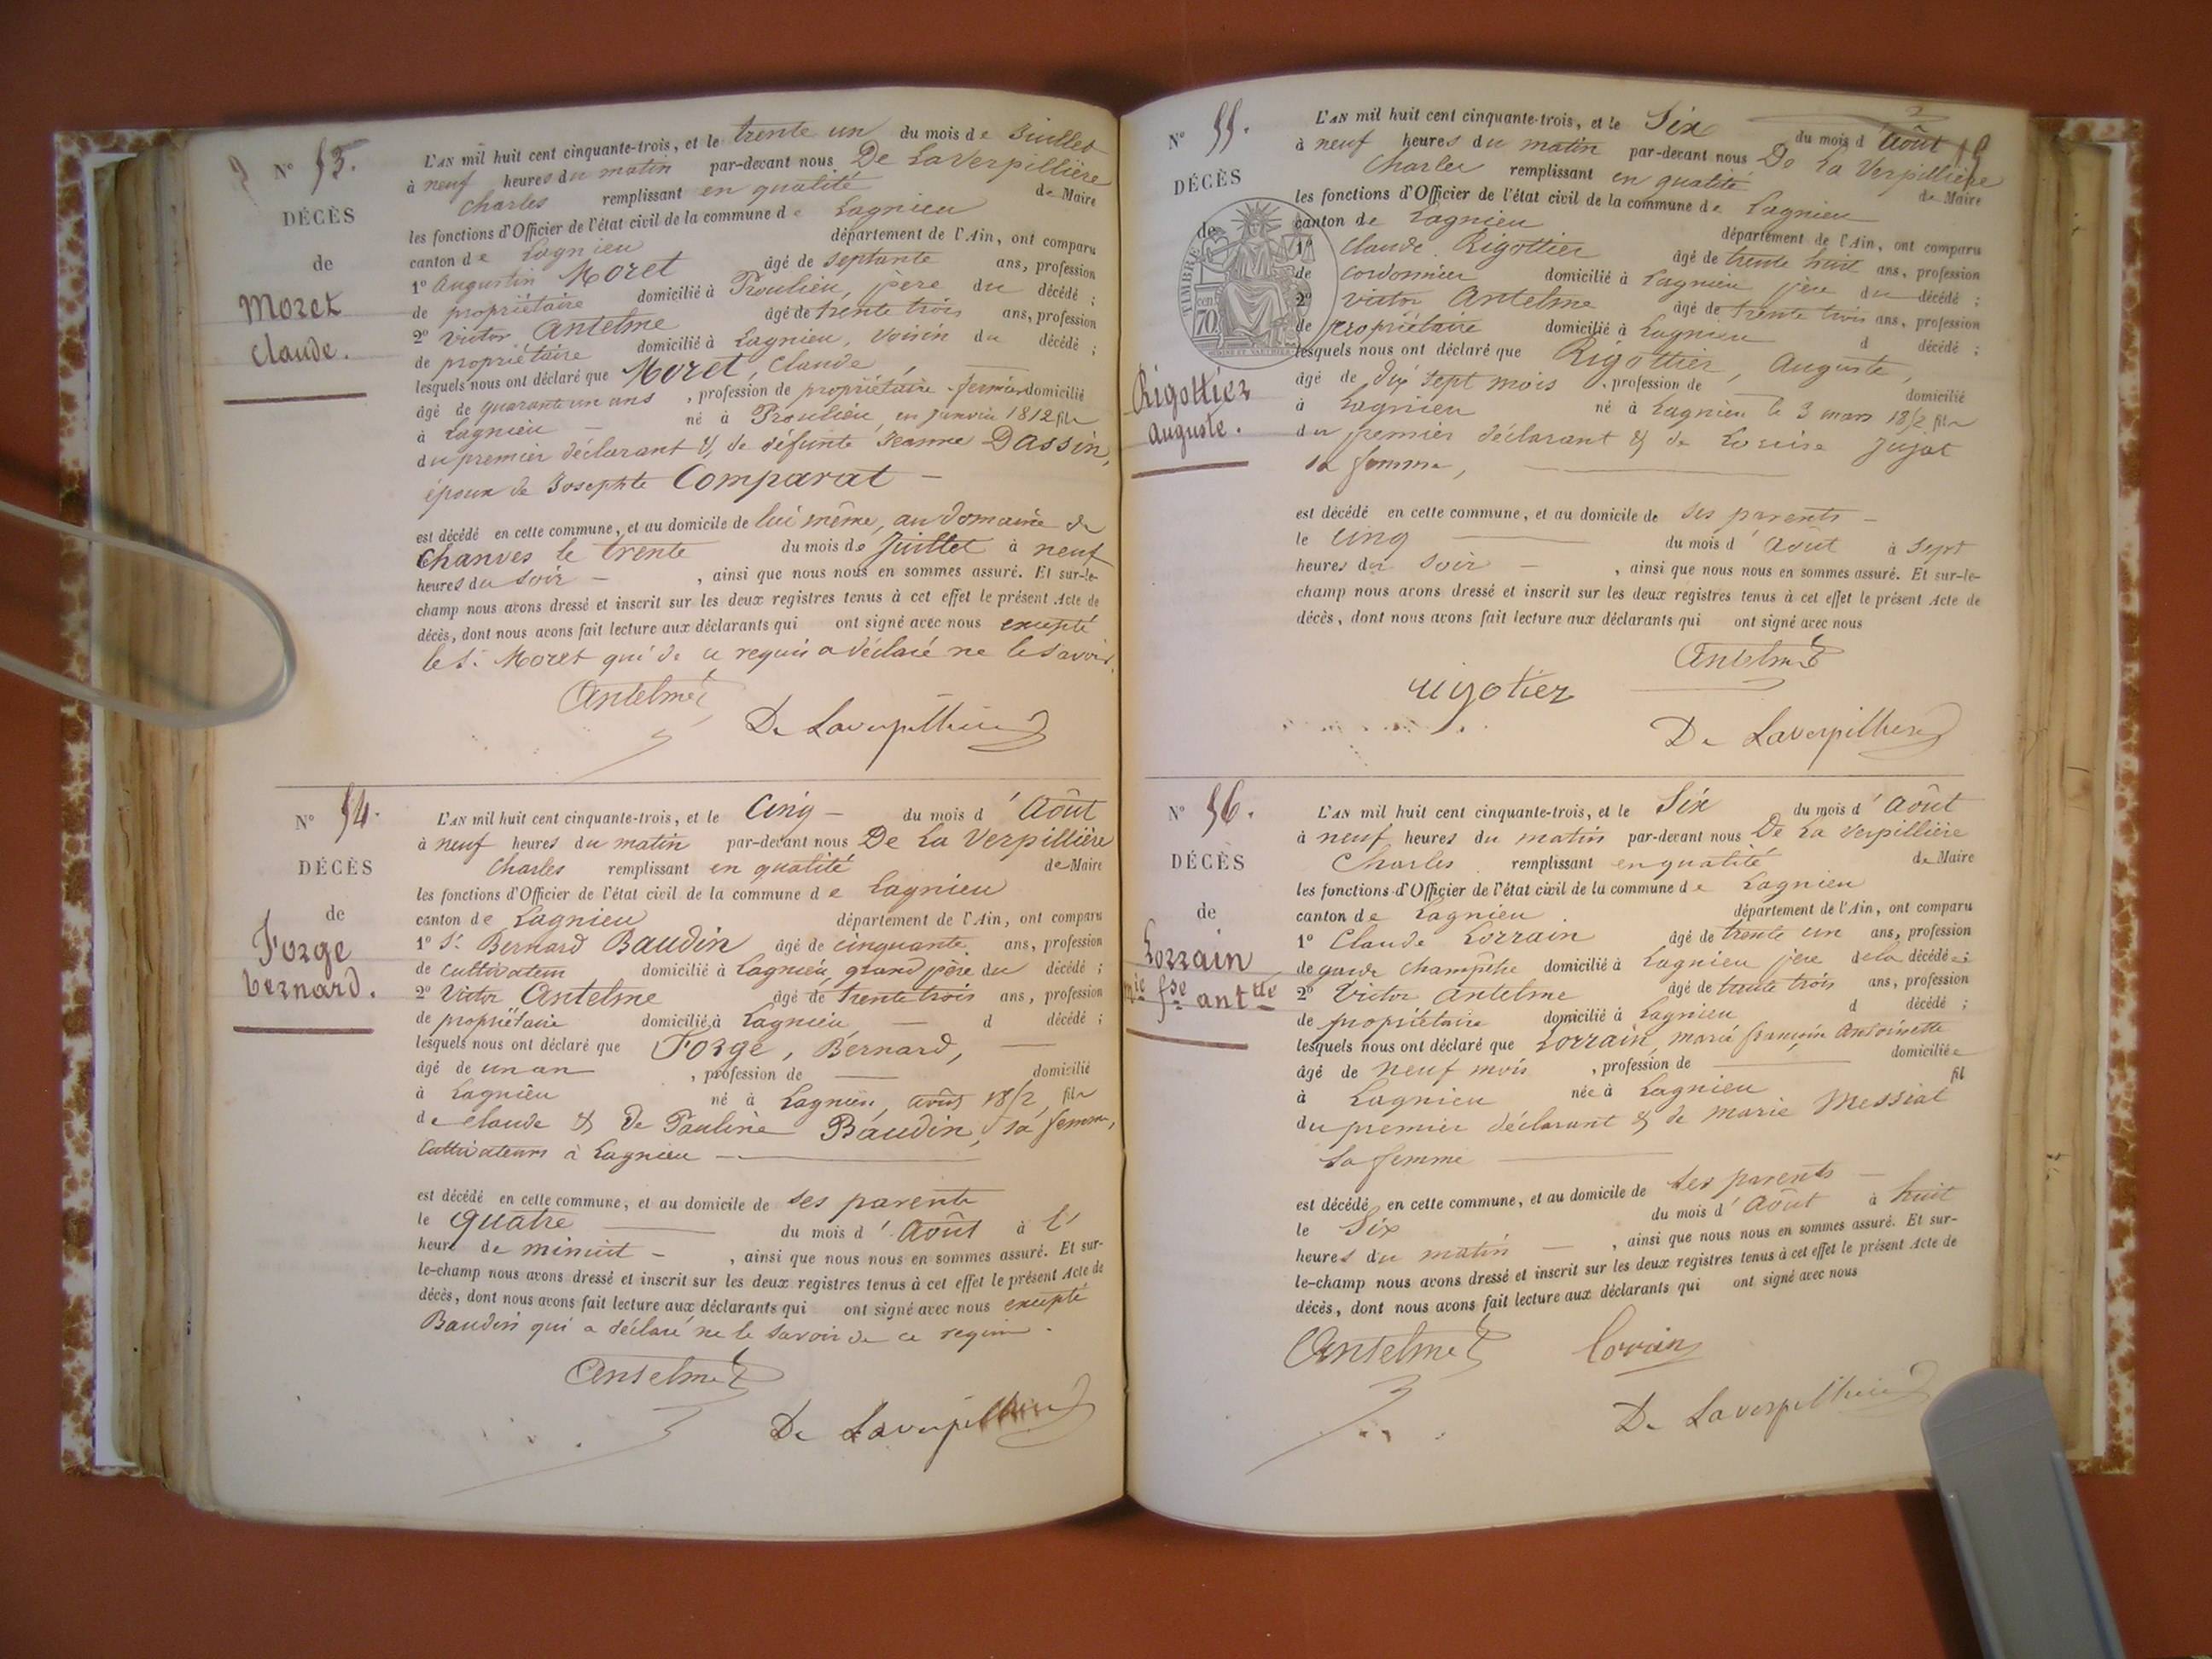 N° 53.
DÉCÈS
de
Moret
Claude.
L'AN mil huit cent cinquante-trois, et le trente un du mois de Juillet
à neuf heures du matin par-devant nous De LaVerpillière
Charles remplissant en qualité de Maire
les fonctions d'Officier de l'état civil de la commune de Lagnieu
canton de Lagnieu département de l'Ain, ont comparu
1° Augustin Moret âgé de septante ans, profession
de propriétaire domicilié à Proulieu, père du décédé ;
2° Victor Antelme âgé de trente trois ans, profession
de propriétaire domicilié à Lagnieu, Voisin du décédé ;
lesquels nous ont déclaré que Moret, Claude,
âgé de quarante un ans, profession de propriétaire fermier domicilié
à Lagnieu né à Proulieu, en janvier 1812 fils
du premier déclarant & de défunte Jeanne Dassin,
époux de Josephte Comparat —
est décédé en cette commune, et au domicile de lui même, au domaine de
Chanves le trente du mois de Juillet à neuf
heures du soir — , ainsi que nous nous en sommes assuré. Et sur-le-
champ nous avons dressé et inscrit sur les deux registres tenus à cet effet le présent Acte de
décès, dont nous avons fait lecture aux déclarants qui ont signé avec nous excepté
le S. Moret qui de ce requis a déclaré ne le savoir.
Antelme
De Laverpilliere
N° 54.
DÉCÈS
de
Forge
bernard.
L'AN mil huit cent cinquante-trois, et le Cinq — du mois d'Août
à neuf heures du matin par-devant nous De La Verpillière
Charles remplissant en qualité de Maire
les fonctions d'Officier de l'état civil de la commune de Lagnieu
canton de Lagnieu département de l'Ain, ont comparu
1° Sr Bernard Baudin âgé de cinquante ans, profession
de cultivateur domicilié à Lagnieu, grand père du décédé ;
2° Victor Antelme âgé de trente trois ans, profession
de propriétaire domicilié à Lagnieu — d décédé ;
lesquels nous ont déclaré que Forge, Bernard, —
âgé de un an , profession de — domicilié
à Lagnieu né à Lagnieu, août 1852, fils
de Claude & de Pauline Baudin, sa femme,
Cultivateurs à Lagnieu —
est décédé en cette commune, et au domicile de ses parents
le quatre — du mois d'Août à l'
heure de minuit — , ainsi que nous nous en sommes assuré. Et sur-
le-champ nous avons dressé et inscrit sur les deux registres tenus à cet effet le présent Acte de
décès, dont nous avons fait lecture aux déclarants qui ont signé avec nous excepté
Baudin qui a déclaré ne le savoir de ce requis.
Antelme
De Laverpilliere
N° 55.
DÉCÈS
de
TIMBRE
70
Rigottier
Auguste.
L'AN mil huit cent cinquante-trois, et le Six du mois d'Août
à neuf heures du matin par-devant nous De La Verpillière
Charles remplissant en qualité de Maire
les fonctions d'Officier de l'état civil de la commune de Lagnieu
canton de Lagnieu département de l'Ain, ont comparu
1° Claude Rigottier âgé de trente huit ans, profession
de cordonnier domicilié à Lagnieu père du décédé ;
2° Victor Antelme âgé de trente trois ans, profession
de propriétaire domicilié à Lagnieu d décédé ;
lesquels nous ont déclaré que Rigottier, Auguste,
âgé de dix sept mois , profession de domicilié
à Lagnieu né à Lagnieu le 3 mars 1852 fils
du premier déclarant & de Louise Jujat
sa femme, —
est décédé en cette commune, et au domicile de ses parents —
le Cinq — du mois d'Août à sept
heures du soir — , ainsi que nous nous en sommes assuré. Et sur-le-
champ nous avons dressé et inscrit sur les deux registres tenus à cet effet le présent Acte de
décès, dont nous avons fait lecture aux déclarants qui ont signé avec nous
Antelme
rigotier
De Laverpilliere
N° 56.
DÉCÈS
de
Lorrain
mie fse antte
L'AN mil huit cent cinquante-trois, et le Six du mois d'Août
à neuf heures du matin par-devant nous De La Verpillière
Charles remplissant en qualité de Maire
les fonctions d'Officier de l'état civil de la commune de Lagnieu
canton de Lagnieu département de l'Ain, ont comparu
1° Claude Lorrain âgé de trente un ans, profession
de garde champêtre domicilié à Lagnieu père de la décédée ;
2° Victor Antelme âgé de trente trois ans, profession
de propriétaire domicilié à Lagnieu d décédé ;
lesquels nous ont déclaré que Lorrain, marie françoise Antoinette
âgé de neuf mois , profession de — domiciliée
à Lagnieu née à Lagnieu fil
du premier déclarant & de Marie Messiat
sa femme —
est décédé en cette commune, et au domicile de ses parents —
le Six du mois d'Août à huit
heures du matin — , ainsi que nous nous en sommes assuré. Et sur-
le-champ nous avons dressé et inscrit sur les deux registres tenus à cet effet le présent Acte de
décès, dont nous avons fait lecture aux déclarants qui ont signé avec nous
Antelme Lorrain
De Laverpilliere